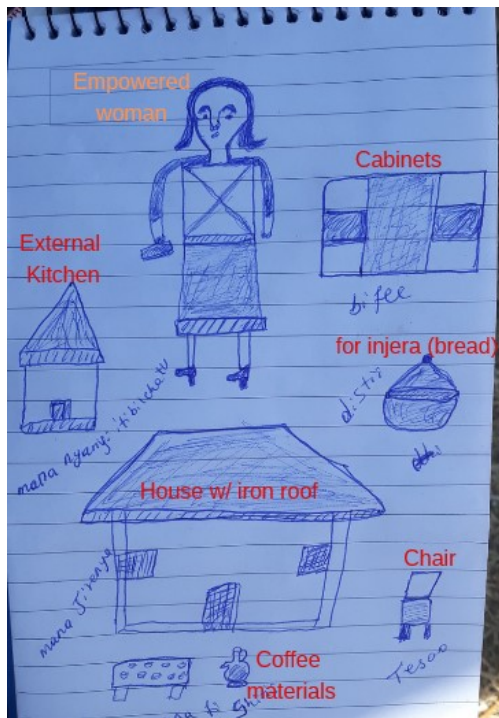 Empowered
woman
Cabinets
bifee
External
Kitchen
for injera (bread)
distii
mana nyanyi itibilchatu
House w/ iron roof
mana Jirenya
Chair
Tesoo
Coffee
materials